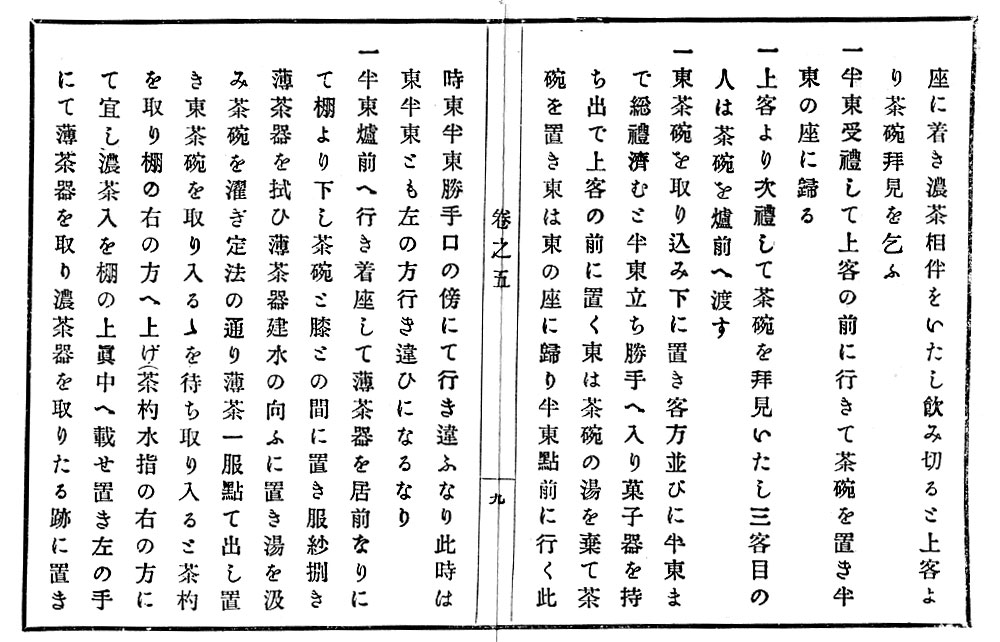 座に着き濃茶相伴をいたし飲み切ると上客よ
り茶碗拜見を乞ふ
一半東受禮して上客の前に行きて茶碗を置き半
東の座に歸る
一上客より次禮して茶碗を拜見いたし三客目の
人は茶碗を爐前へ渡す
一東茶碗を取り込み下に置き客方並びに半東ま
で総禮濟むと半東立ち勝手へ入り菓子器を持
ち出で上客の前に置く東は茶碗の湯を棄て茶
碗を置き東は東の座に歸り半東點前に行く此
卷之五
九
時東半東勝手口の傍にて行き違ふなり此時は
東半東とも左の方行き違ひになるなり
一半東爐前へ行き着座して薄茶器を居前なりに
て棚より下し茶碗と膝との間に置き服紗捌き
薄茶器を拭ひ薄茶器建水の向ふに置き湯を汲
み茶碗を濯ぎ定法の通り薄茶一服點て出し置
き東茶碗を取り入るゝを待ち取り入ると茶杓
を取り棚の右の方へ上げ(茶杓水指の右の方に
て宜し濃茶入を棚の上眞中へ載せ置き左の手
にて薄茶器を取り濃茶器を取りたる跡に置き